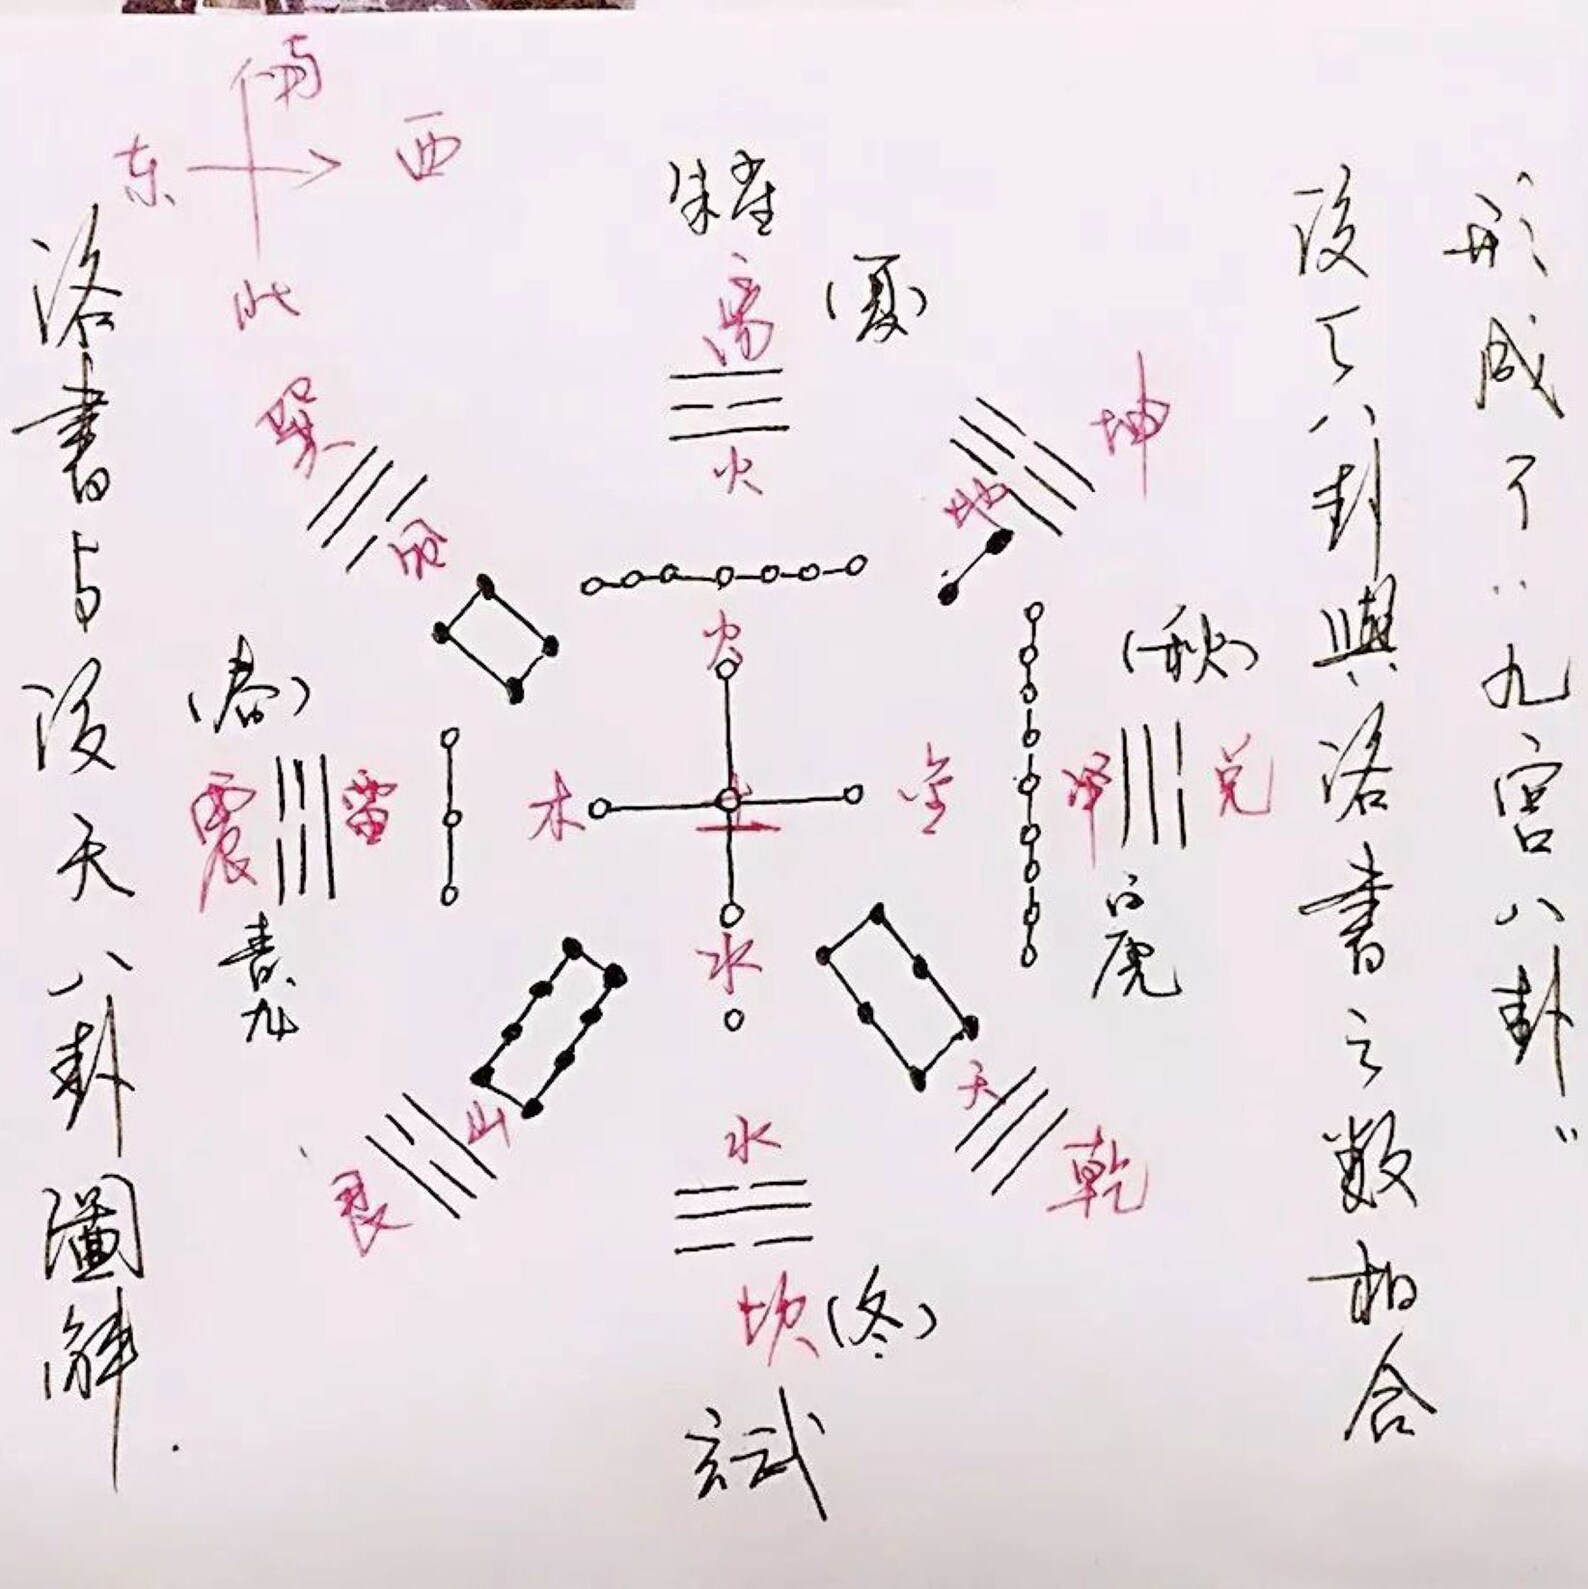 南
东
西
北
朱雀
离
(夏)
火
巽
风
坤
地
(春)
震
雷
青龙
木
火
土
金
水
(秋)
泽
兑
白虎
山
艮
水
坎
(冬)
玄武
天
乾
洛書与后天八卦圖解
后天八卦與洛書之数相合
形成了“九宫八卦”